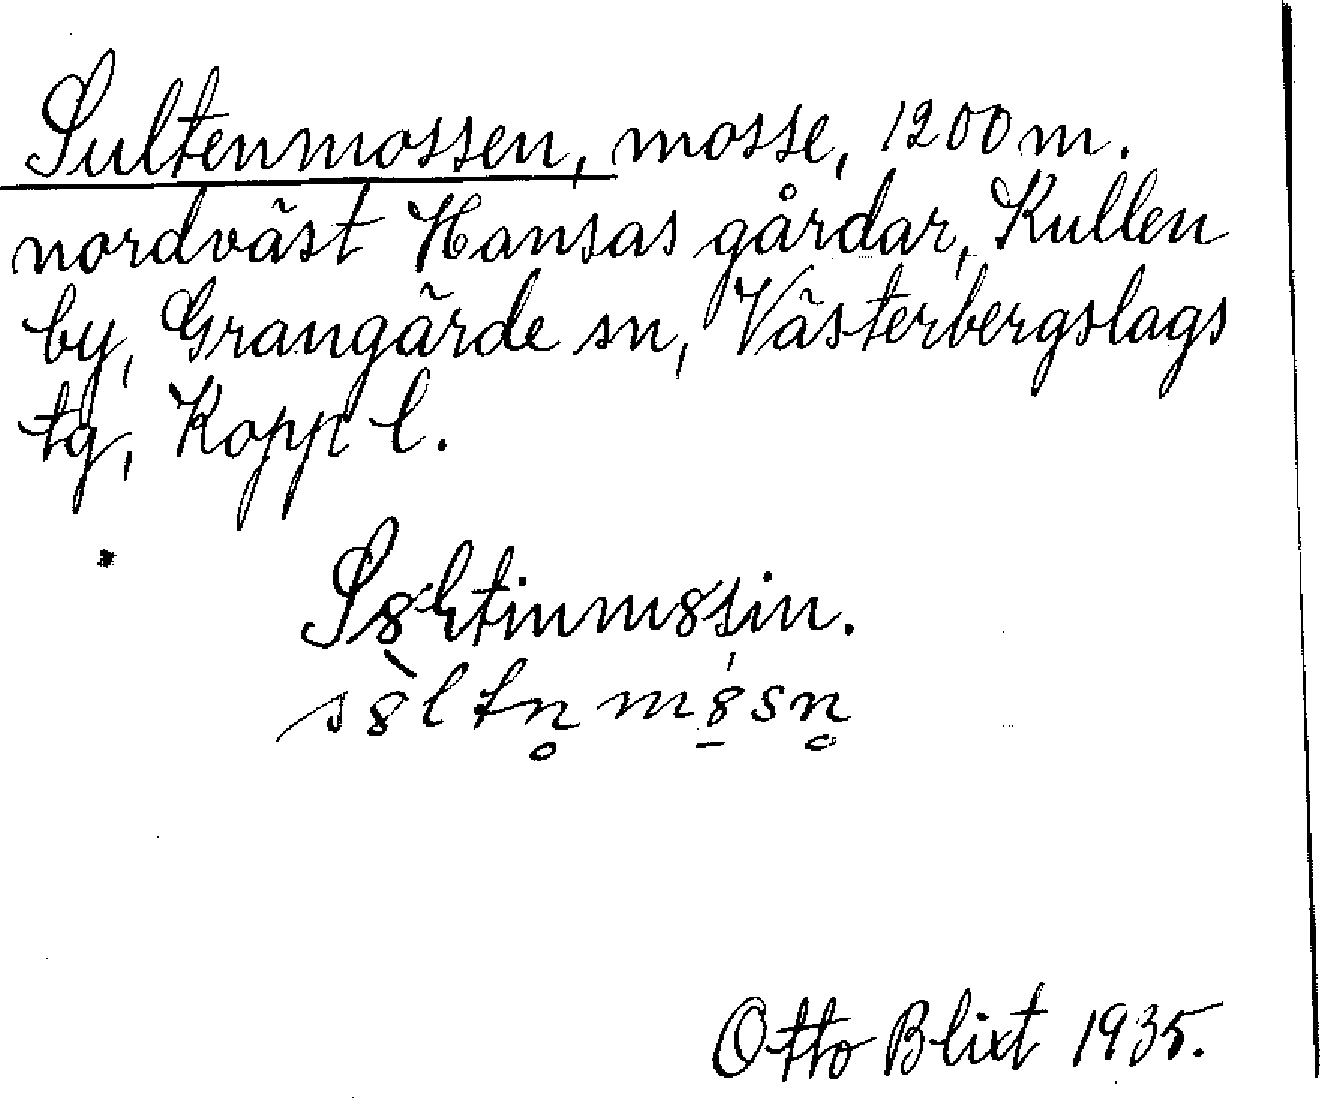 Sultenmossen, mosse, 1200 m.
nordväst Hansas gårdar, Kullen
by, Grangärde sn, Västerbergslags
tg, Kopp l.
S8ltinm8sin.
s8̀ltn̥m8̱́sn̥
Otto Blixt 1935.